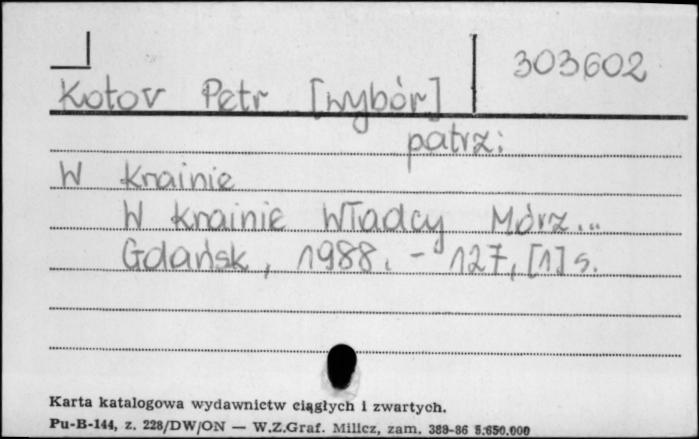 303602
Kotov Petr [wybór]
patrz:
W krainie
W krainie Władcy Mórz...
Gdańsk, 1988. - 127, [1] s.
Karta katalogowa wydawnictw ciągłych i zwartych.
Pu-B-144, z. 228/DW/ON — W.Z.Graf. Milicz, zam. 389-86 5.650.000